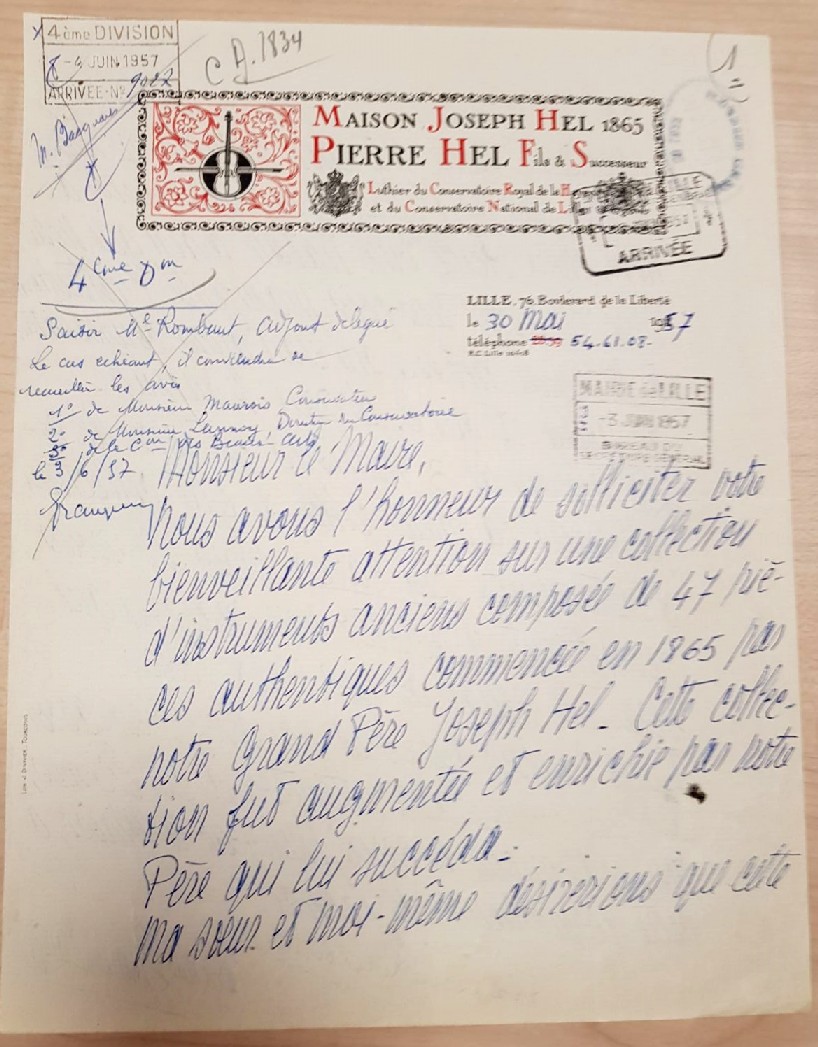 4ème DIVISION
-4 JUIN 1957
ARRIVÉE-N° 9027
C A. 1834
MAISON JOSEPH HEL 1865
PIERRE HEL Fils & Successeur
Luthier du Conservatoire Royal de la
et du Conservatoire National de Lille
ARRIVÉE
4ème Don
LILLE, 76, Boulevard de la Liberté
le 30 Mai 1957
téléphone 54.61.08-
Saisir Mr Rombaut, adjoint délégué
Le cas échéant, il conviendra de
recueillir les avis
1° de Monsieur Maurois Conservateur
2° de Monsieur Lannoy Directeur du Conservatoire
3° de la Con des Beaux-Arts
le /6/57
MAIRIE de LILLE
-3 JUIN 1957
BUREAU DU
Monsieur le Maire,
Nous avons l'honneur de solliciter votre
bienveillante attention sur une collection
d'instruments anciens composée de 47 piè-
ces authentiques commencée en 1865 par
notre Grand Père Joseph Hel. Cette collec-
tion fut augmentée et enrichie par notre
Père qui lui succéda.
Ma sœur et moi-même désirerions que cette